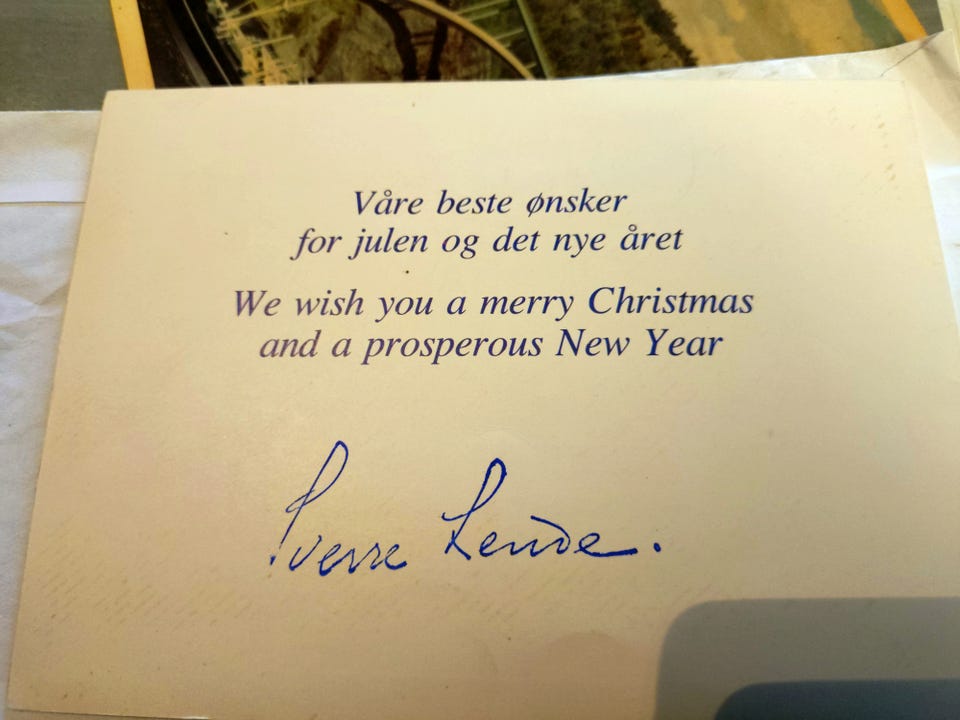 Våre beste ønsker
for julen og det nye året
We wish you a merry Christmas
and a prosperous New Year
Sverre Lende.